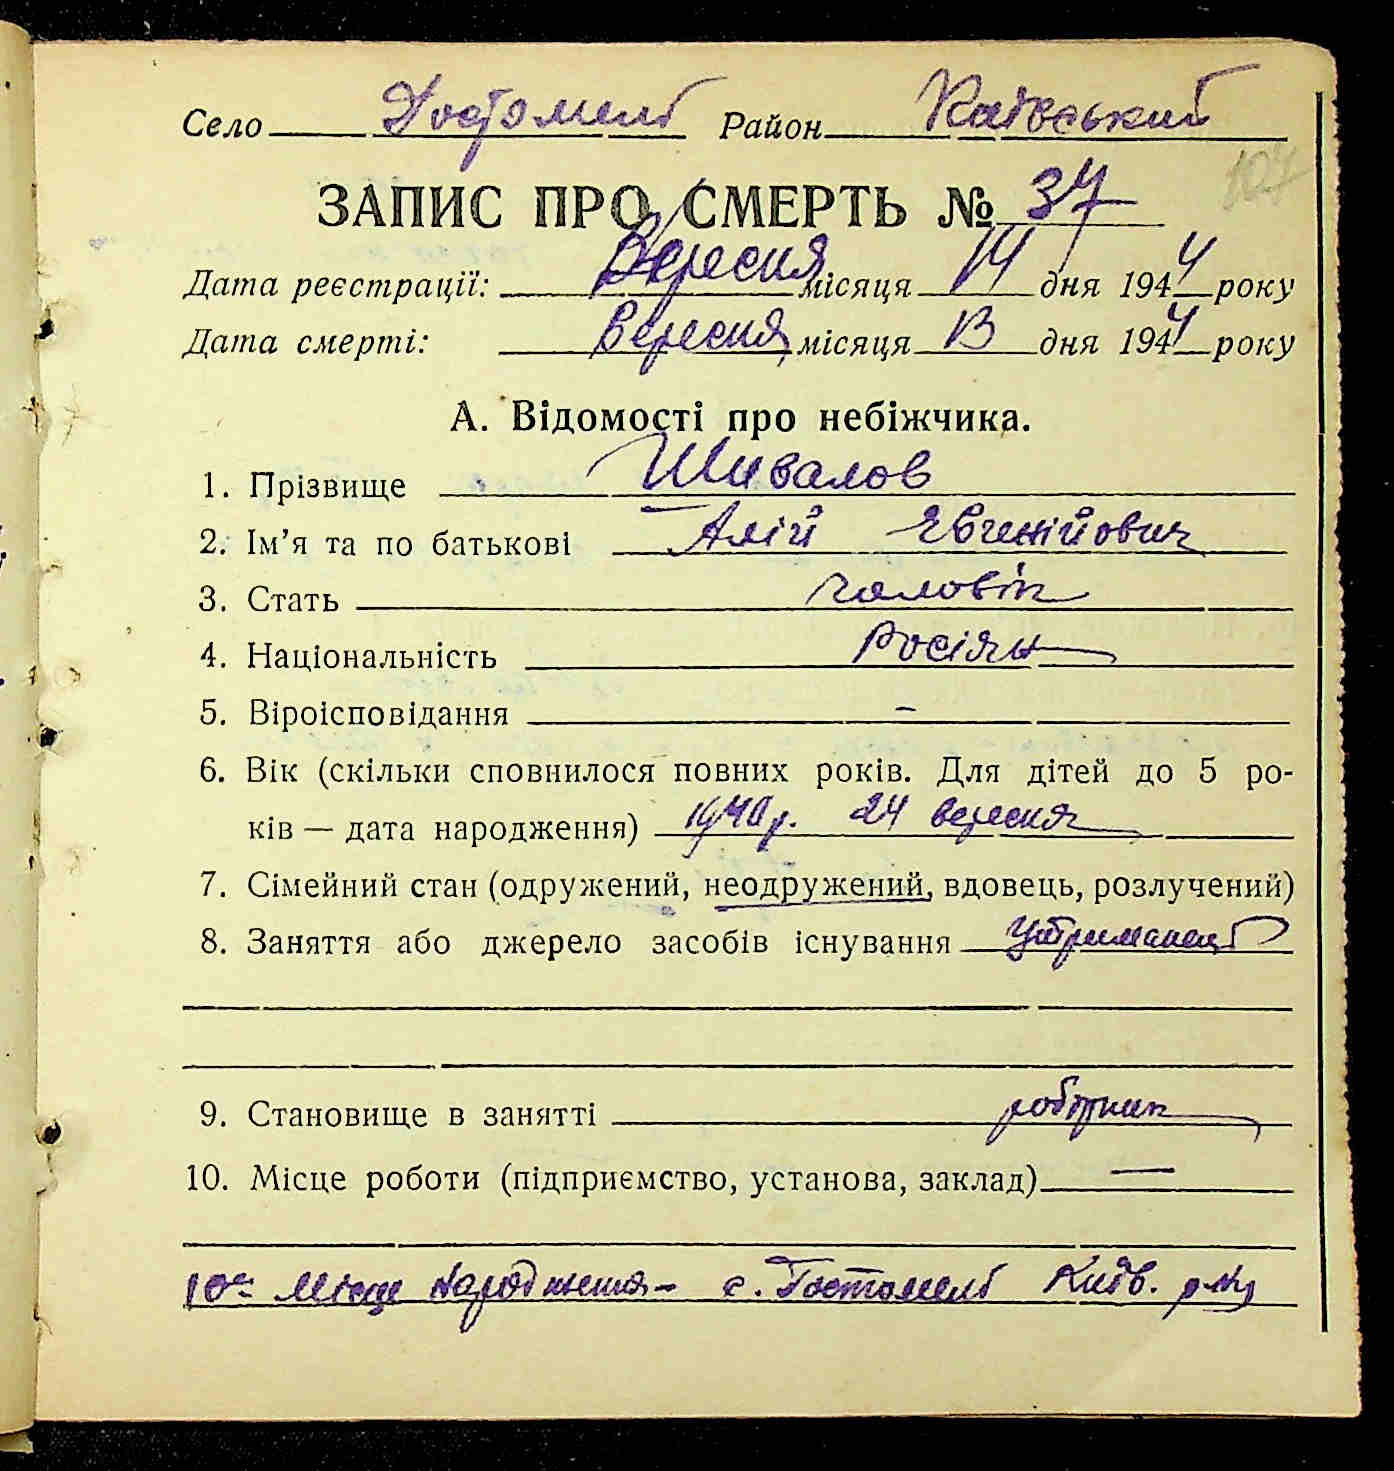 Село Гостомель Район Київський
107
ЗАПИС ПРО СМЕРТЬ № 37
Дата реєстрації: Вересня місяця 14 дня 1944 року
Дата смерті: Вересня місяця 13 дня 1944 року
А. Відомості про небіжчика.
1. Прізвище Шивалов
2. Ім’я та по батькові Алій Євгенійович
3. Стать чоловік
4. Національність Росіян
5. Віроісповідання –
6. Вік (скільки сповнилося повних років. Для дітей до 5 ро-
ків — дата народження) 1940 р. 24 вересня
7. Сімейний стан (одружений, неодружений, вдовець, розлучений)
8. Заняття або джерело засобів існування Утриманець
9. Становище в занятті робітник
10. Місце роботи (підприємство, установа, заклад) —
10а Місце народження – с. Гостомель Київ. р-ну